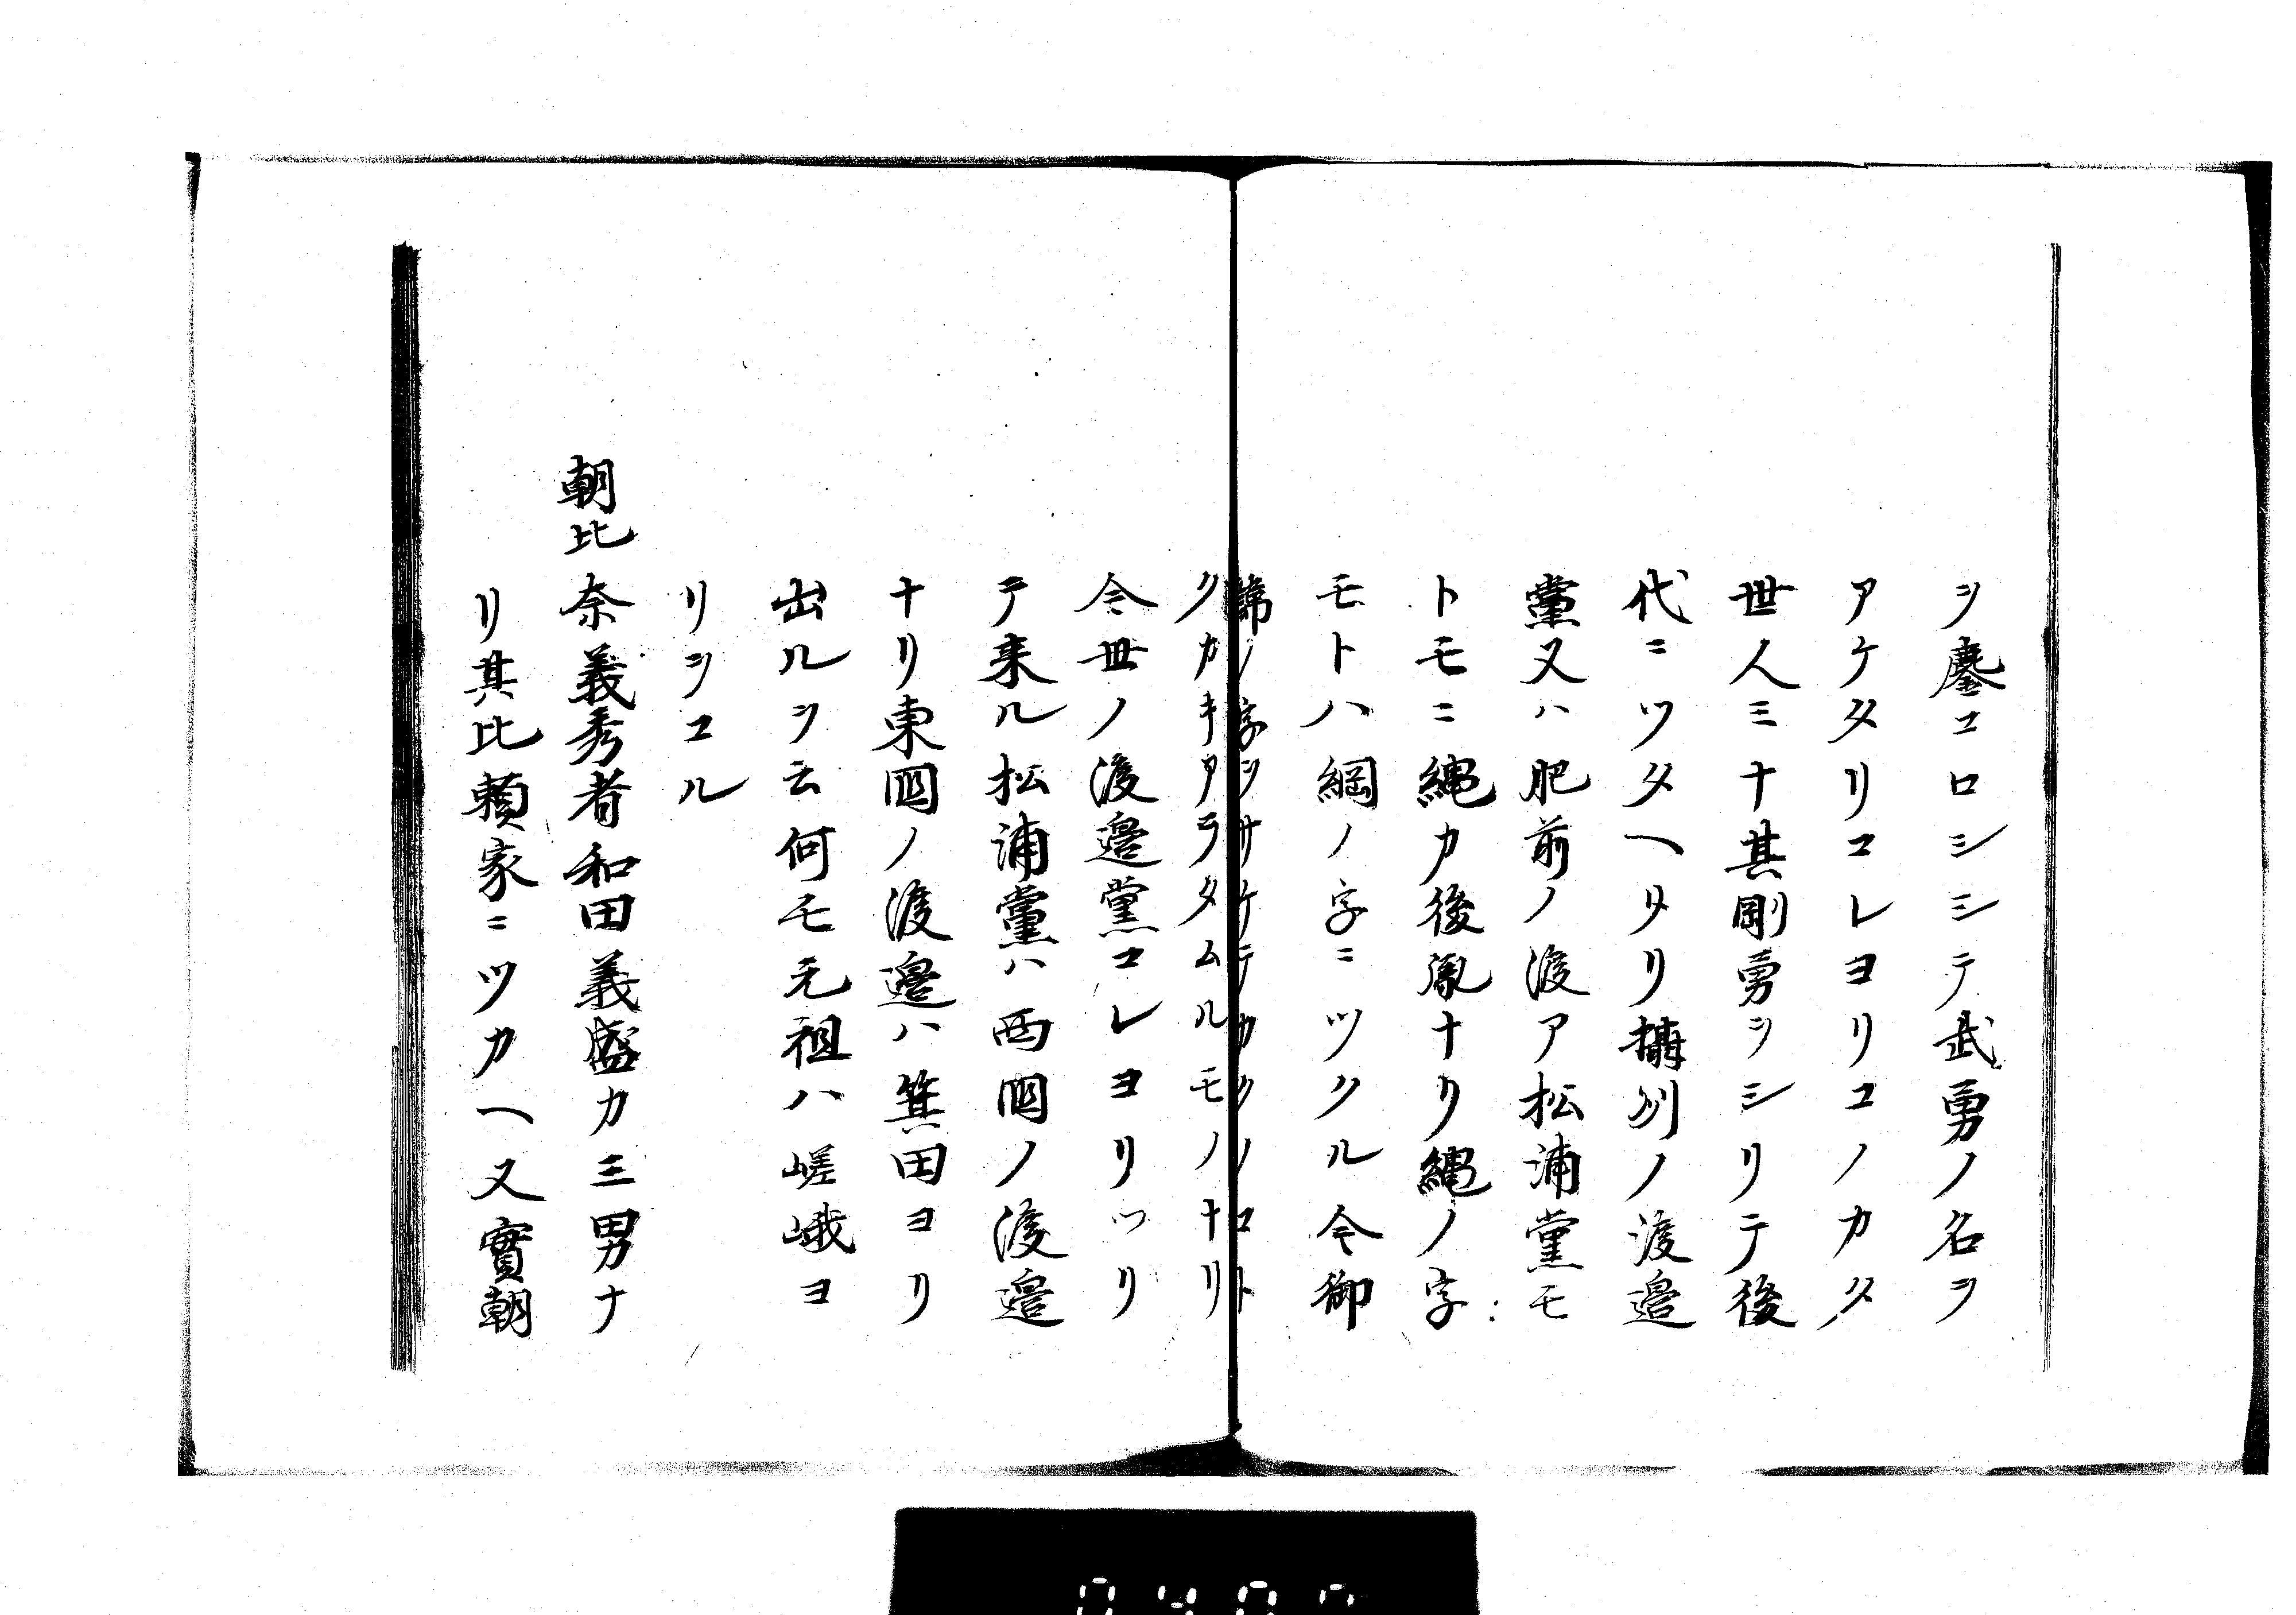 ヲ鏖コロシミシテ武勇ノ名ヲ
アケタリコレヨリコノカタ
世人ミナ其剛勇ヲシリテ後
代ニツタヘタリ攝州ノ渡邉
黨又ハ肥前ノ渡ア松浦黨モ
トモニ縄カ後胤ナリ縄ノ字
モトハ綱ノ字ニツクル今御
諱ノ字ヲサケテカクノコト
クカキアラタムルモノナリ
今世ノ渡邉黨コレヨリツリ
テ来ル松浦黨ハ西國ノ渡邉
ナリ東國ノ渡邉ハ箕田ヨリ
出ルヲ云何モ元祖ハ嵯峨ヨ
リヲコル
朝比奈義秀者和田義盛カ三男ナ
リ其比頼家ニツカヘ又實朝